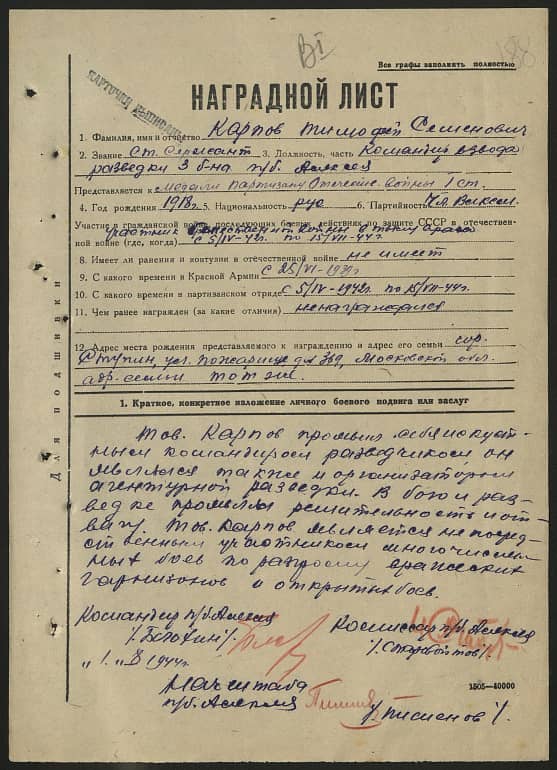 ВI
188
Все графы заполнять полностью
КАРТОЧКА ВЫПИСАНА
НАГРАДНОЙ ЛИСТ
1. Фамилия, имя и отчество Карпов Тимофей Семенович
2. Звание Ст. Сержант 3. Должность, часть Командир взвода
разведки 3 б-на п/б. Алексея
Представляется к медали Партизану Отечествен. войны I ст.
4. Год рождения 1918 г. 5. Национальность рус 6. Партийность Чл. Влксм.
Участие в гражданской войне, последующих боевых действиях по защите СССР и отечествен-
ной войне (где, когда) с 5/IV-42г. по 15/VII-44г.
участник отечественной войны в тылу врага
8. Имеет ли ранения и контузии в отечественной войне не имеет
9. С какого времени в Красной Армии с 25/VI-1939г
10. С какого времени в партизанском отряде с 5/IV-1942г по 15/VII-44г.
11. Чем ранее награжден (за какие отличия) ненаграждался
12. Адрес места рождения представляемого к награждению и адрес его семьи гор.
Ступин, ул. Пожарище д. № 369, Московской обл.
адр. семьи тот же.
Для подшивки
1. Краткое, конкретное изложение личного боевого подвига или заслуг
Тов. Карпов проявил себя искуст-
ным командиром разведчиком он
являлся также и организатором
агентурной разведки. В бою и раз-
ведке проявлял решительность и от-
вагу. Тов. Карпов является непосред-
ственным участником многочислен-
ных боев по разгрому вражеских
гарнизонов и открытых боев.
Командир п/б. Алексея
Комиссар п/б. Алексея
/Старовойтов/
"1." 1944г.
Нач. штаба
п/б. Алексея
1505—40000